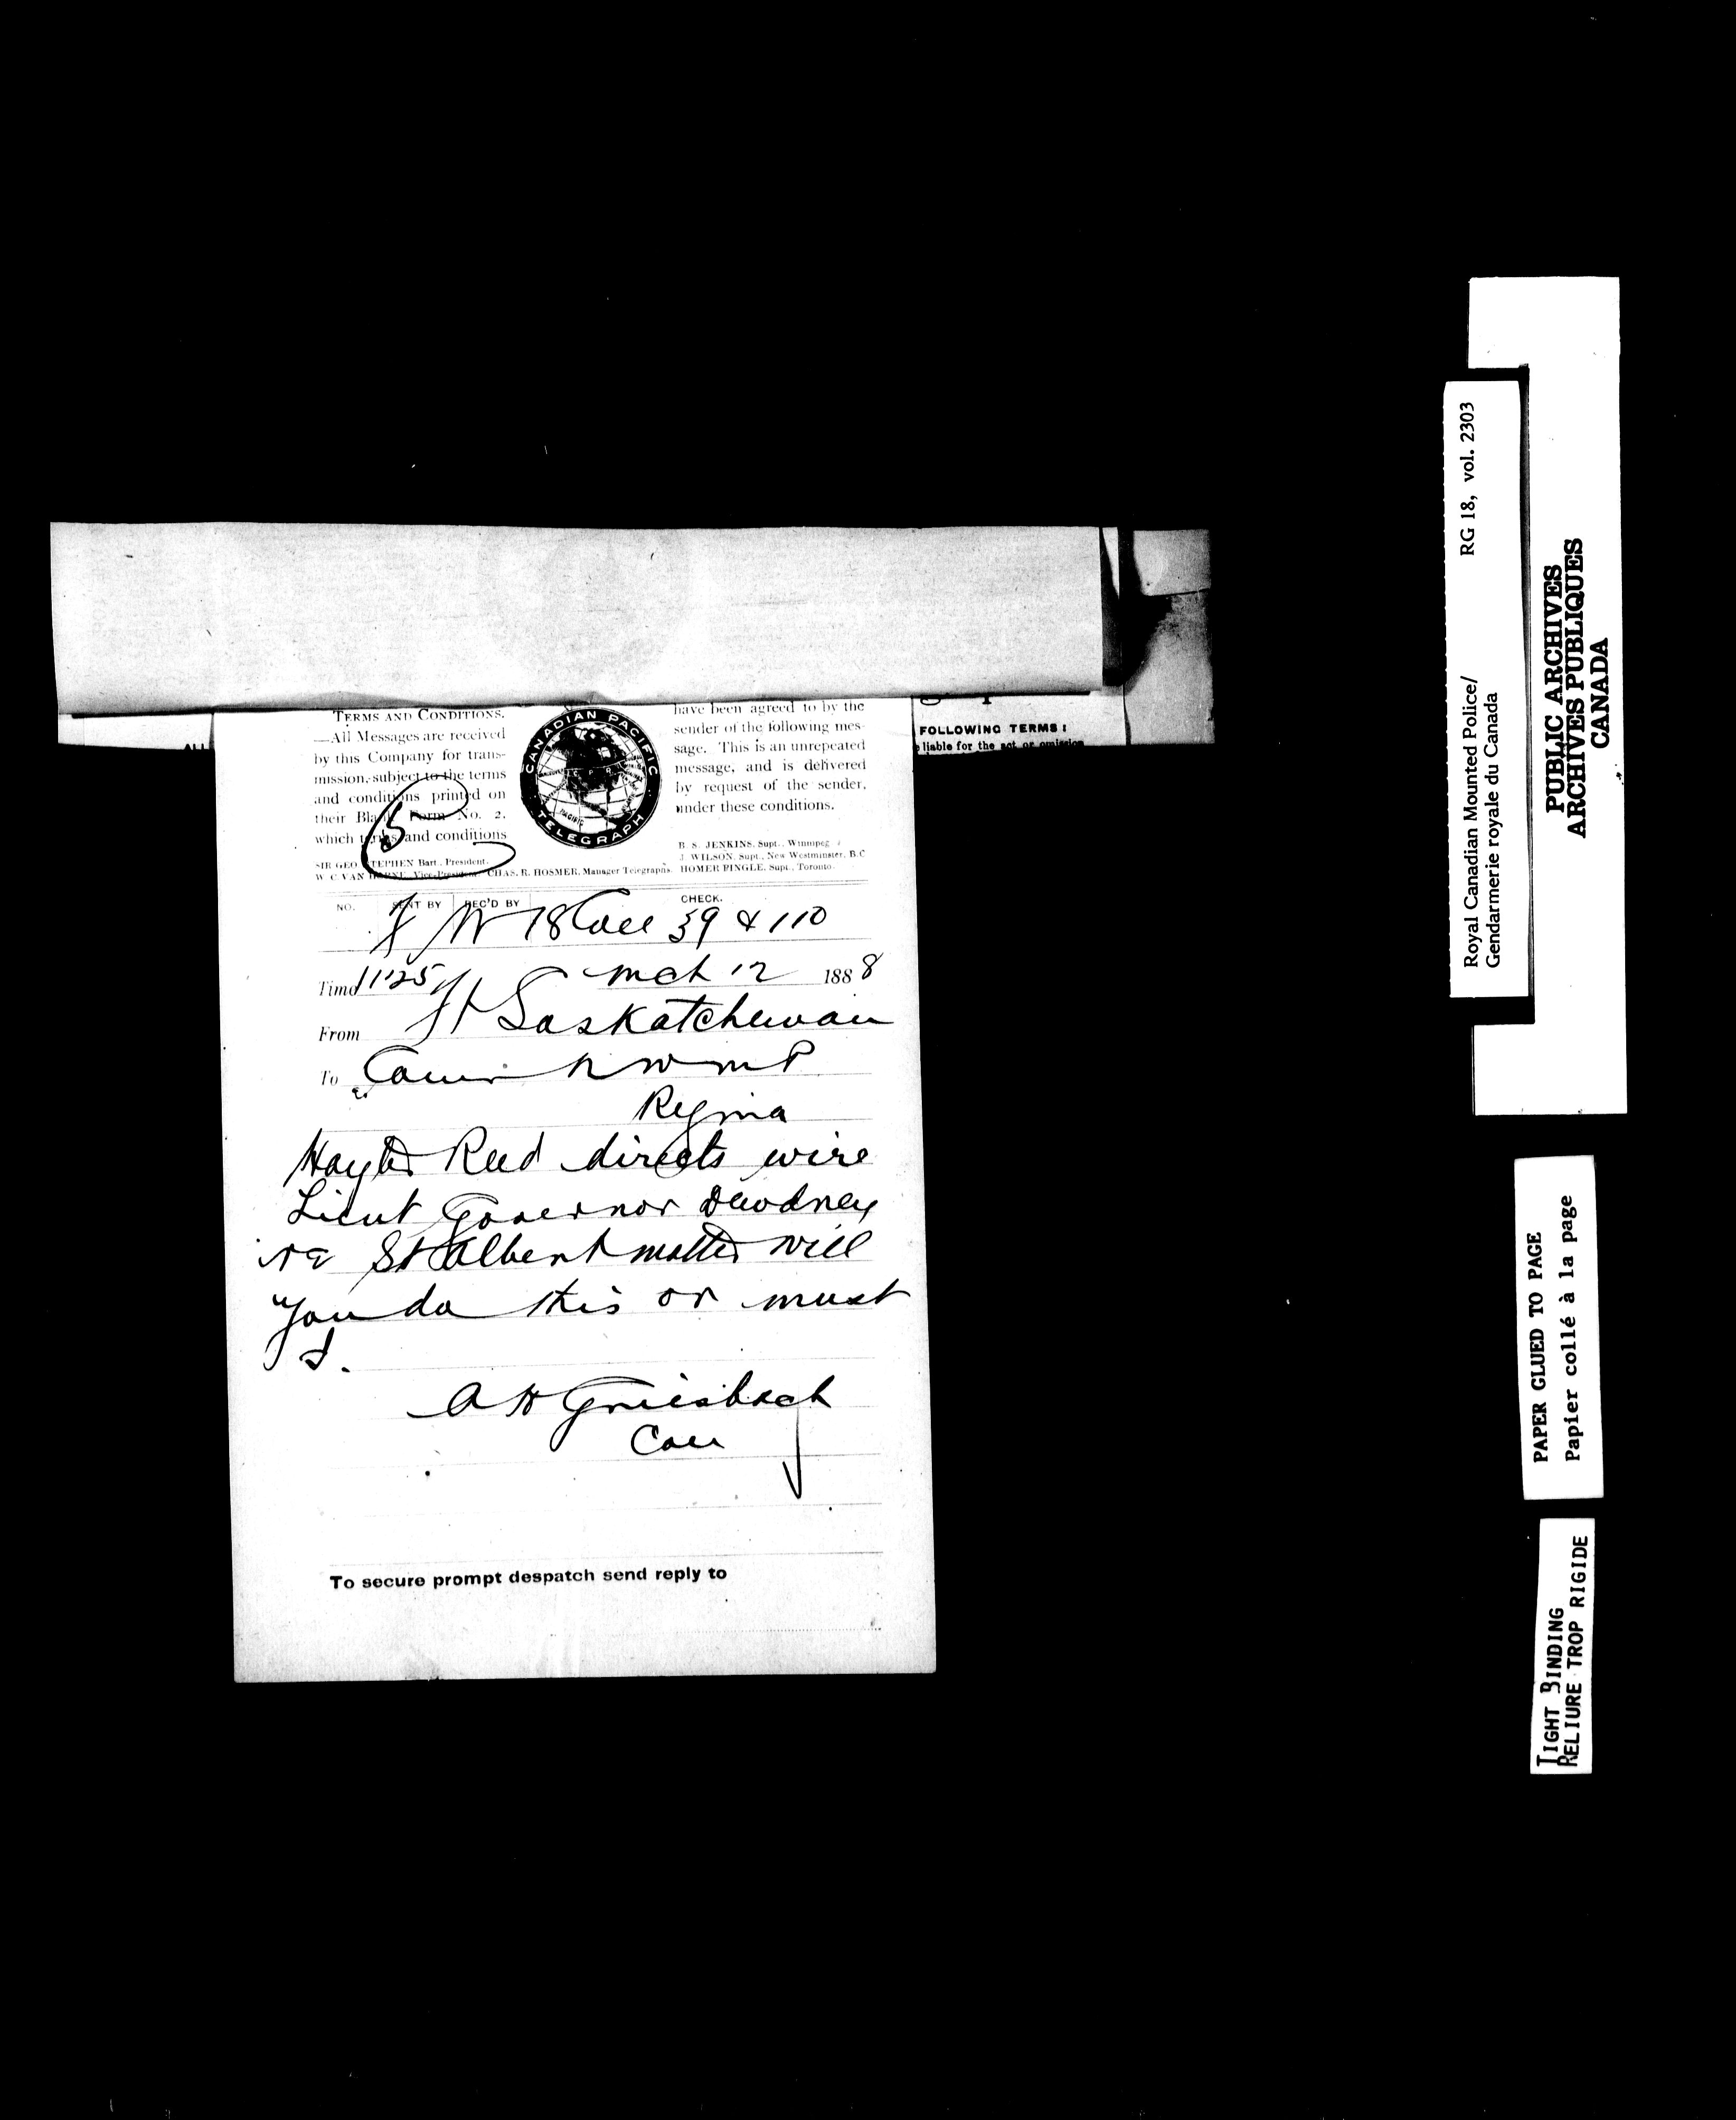 TERMS AND CONDITIONS.
—All Messages are received
by this Company for trans-
mission, subject to the terms
and conditions printed on
their Blank Form No. 2.
which terms and conditions
have been agreed to by the
sender of the following mes-
sage. This is an unrepeated
message, and is delivered
by request of the sender,
under these conditions.
CANADIAN PACIFIC
TELEGRAPH
B. S. JENKINS, Supt., Winnipeg
J. WILSON, Supt., New Westminster, B.C
SIR GEO STEPHEN Bart., President.
W. C. VAN HORNE, Vice-President CHAS. R. HOSMER, Manager Telegraphs. HOMER PINGLE, Supt., Toronto.
ALL
FOLLOWING TERMS:
liable for the act or omission
NO. SENT BY REC'D BY CHECK.
W 78 39 & 110
Time 1125 Mch 12 1888
From Ft Saskatchewan
To Comr N W M P
Regina
Hayter Reed directs wire
Lieut Governor Dewdney
re St Albert matter will
you do this or must
I.
A H Griesbach
To secure prompt despatch send reply to
Royal Canadian Mounted Police/ RG 18, vol. 2303
Gendarmerie royale du Canada
PUBLIC ARCHIVES
ARCHIVES PUBLIQUES
CANADA
PAPER GLUED TO PAGE
Papier collé à la page
TIGHT BINDING
RELIURE TROP RIGIDE